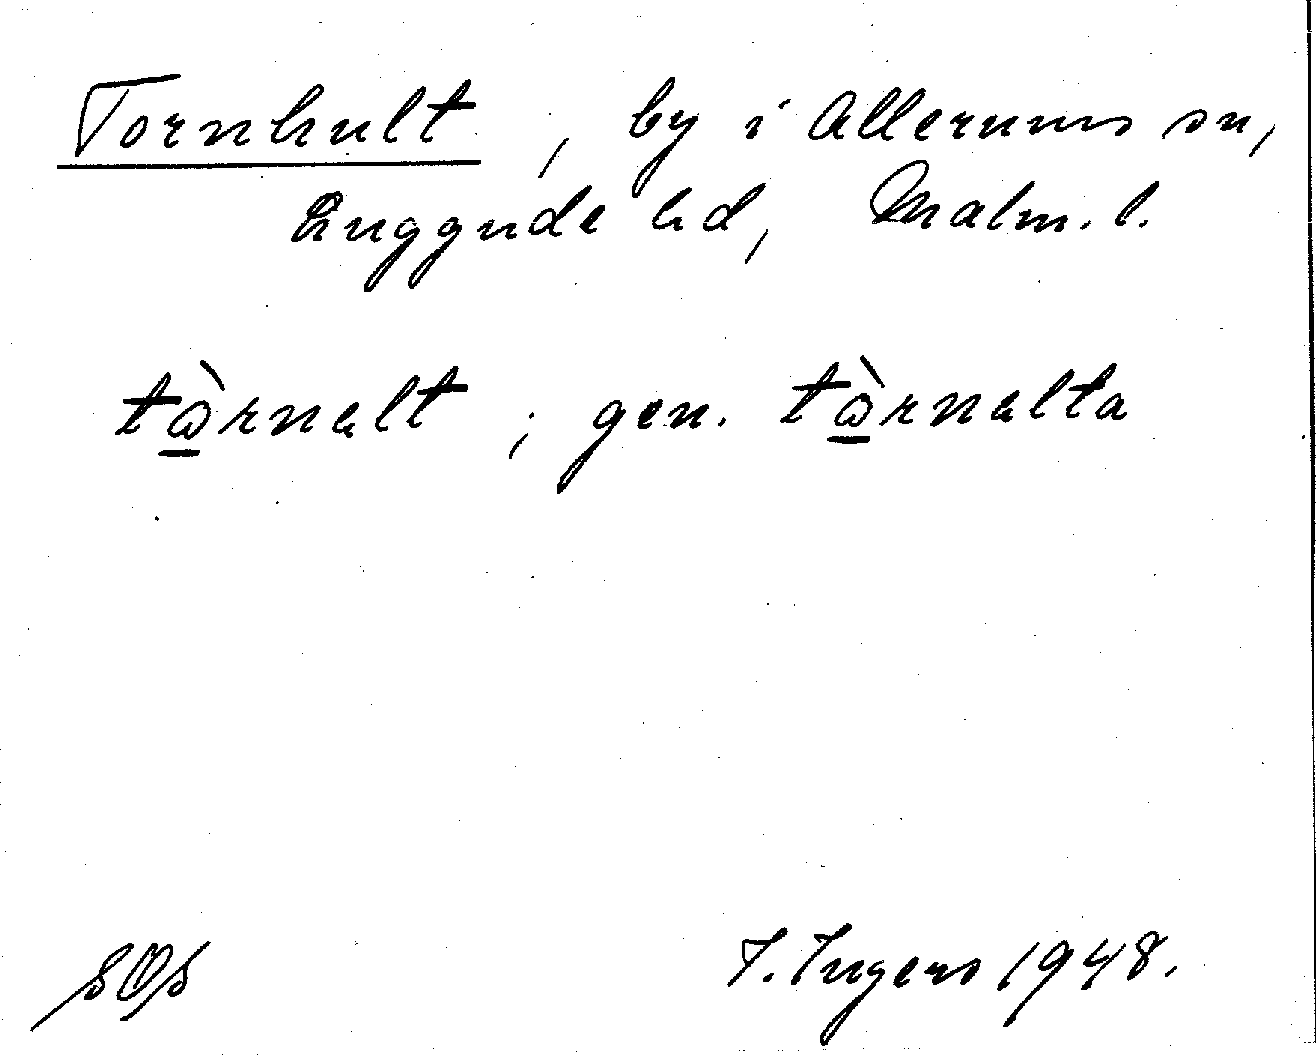 Tornhult, by i Allerums sn,
Luggude hd, Malm. l.
tὼ̲rnalt ; gen. tὼ̲rnalta
SOS I. Ingers 1948.